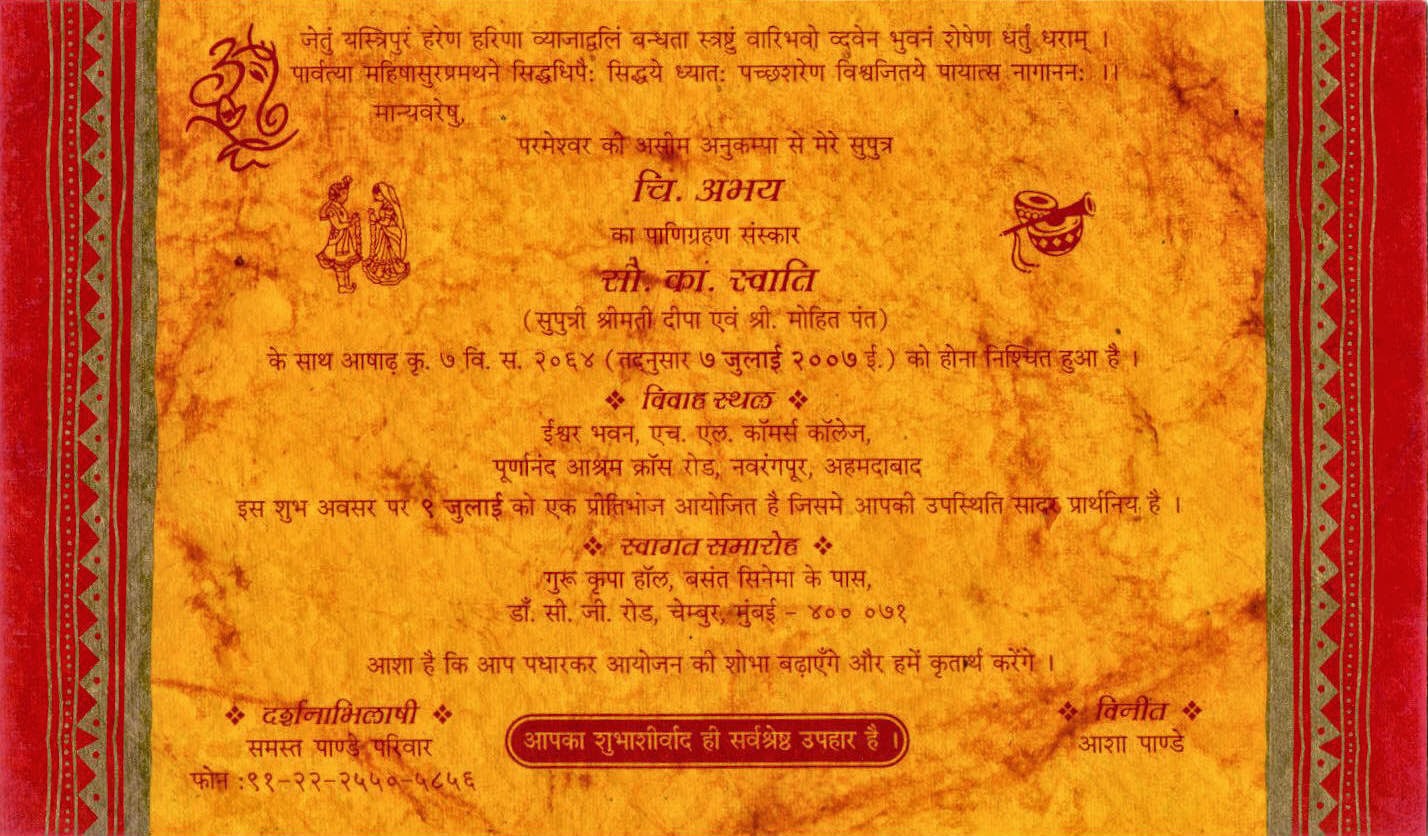 जेतुं यस्त्रिपुरं हरेण हरिणा व्याजाद्वलिं बन्धता स्त्रष्टुं वारिभवो व्द्रवेन भुवनं शेषेण धर्तुं धराम् ।
पार्वत्या महिषासुरप्रमथने सिद्धधिपै: सिद्धये ध्यात: पच्छशरेण विश्वजितये पायात्स नागानन: ।।
मान्यवरेषु,
परमेश्वर की असीम अनुकम्पा से मेरे सुपुत्र
चि. अभय
का पाणिग्रहण संस्कार
सौ. कां. स्वाति
(सुपुत्री श्रीमती दीपा एवं श्री. मोहित पंत)
के साथ आषाढ़ कृ. ७ वि. स. २०६४ (तदनुसार ७ जुलाई २००७ ई.) को होना निश्चित हुआ है ।
❖ विवाह स्थल ❖
ईश्वर भवन, एच. एल. कॉमर्स कॉलेज,
पूर्णानंद आश्रम क्रॉस रोड, नवरंगपूर, अहमदाबाद
इस शुभ अवसर पर ९ जुलाई को एक प्रीतिभोज आयोजित है जिसमे आपकी उपस्थिति सादर प्रार्थनिय है ।
❖ स्वागत समारोह ❖
गुरू कृपा हॉल, बसंत सिनेमा के पास,
डॉ. सी. जी. रोड, चेम्बुर, मुंबई - ४०० ०७१
आशा है कि आप पधारकर आयोजन की शोभा बढ़ाएँगे और हमें कृतार्थ करेंगे ।
❖ दर्शनाभिलाषी ❖
समस्त पाण्डे परिवार
फोन :९१-२२-२५५०-५८५६
आपका शुभाशीर्वाद ही सर्वश्रेष्ठ उपहार है ।
❖ विनीत ❖
आशा पाण्डे